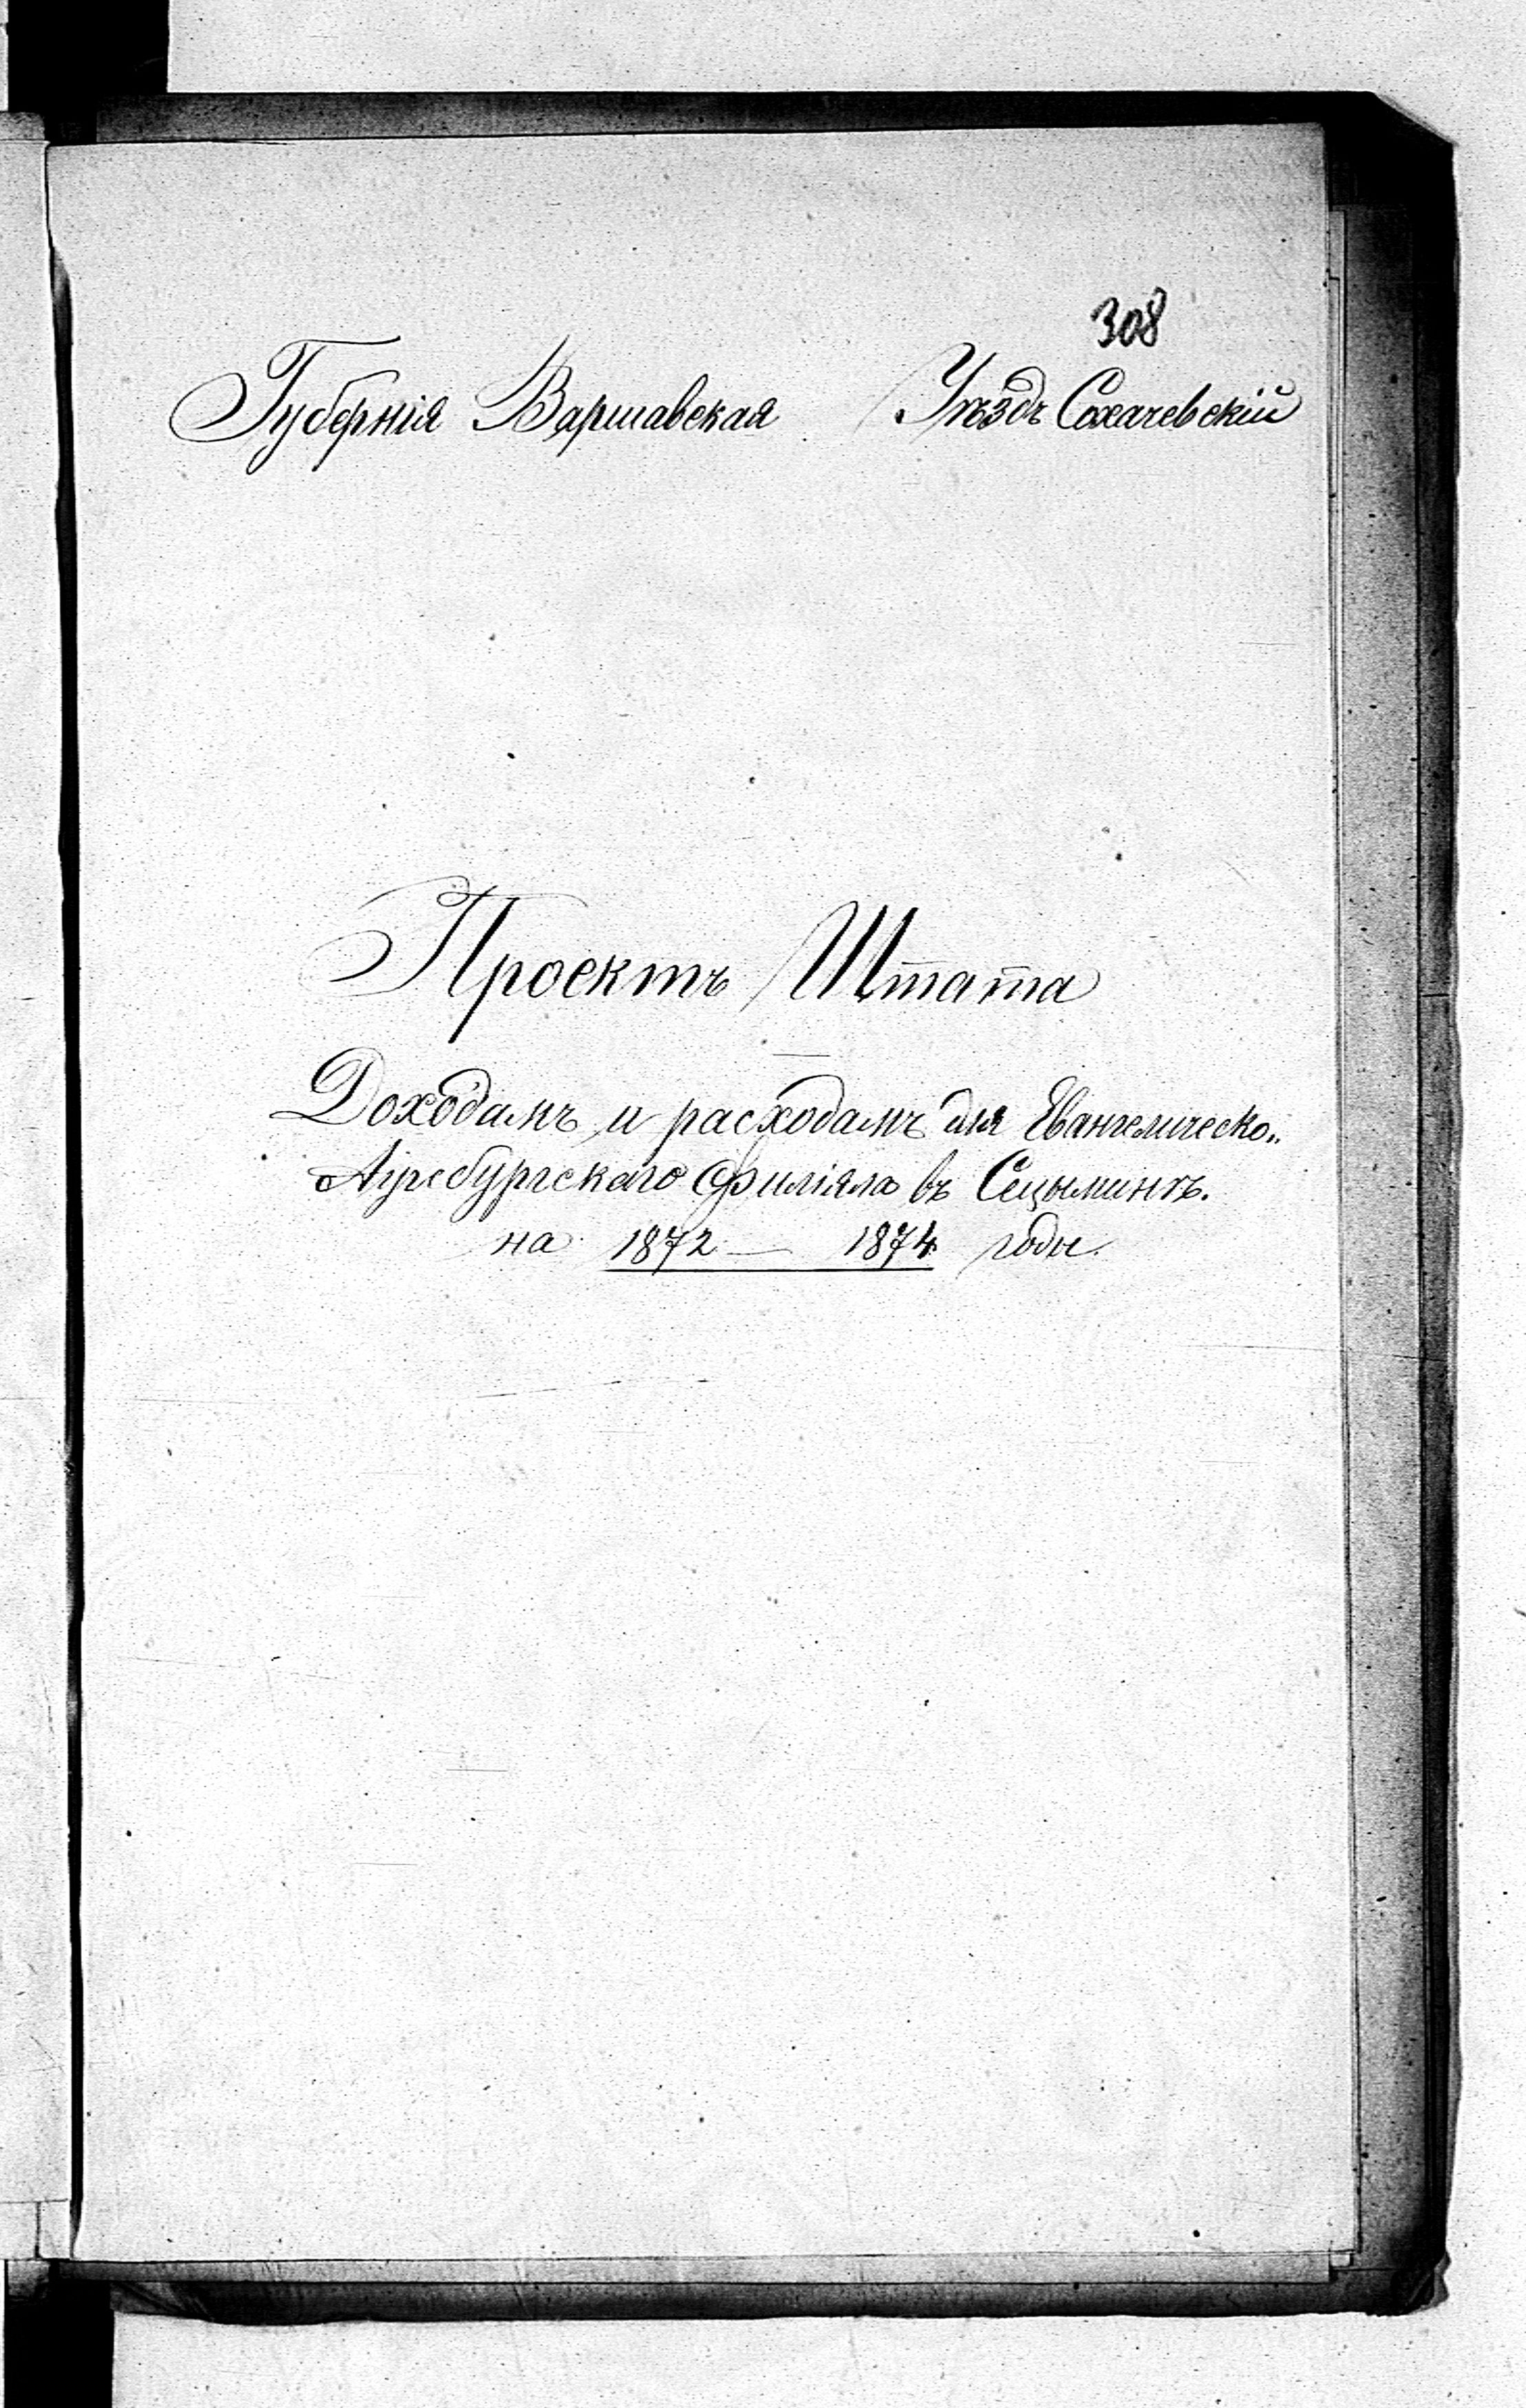 308
Губернія Варшавская Уѣздъ Сохачевскій
Проектъ Штата
Доходамъ и расходамъ для Евангелическо„
Аугсбургскаго Филіяла въ Сецыминѣ.
на 1872 — 1874 годы.